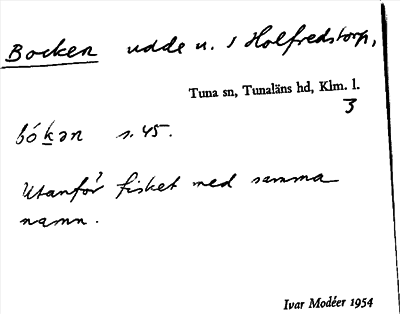 Bocken udde u. s Holfredstorp,
Tuna sn, Tunaläns hd, Klm. l.
3
bókən s. 45.
Utanför fisket med samma
namn.
Ivar Modéer 1954